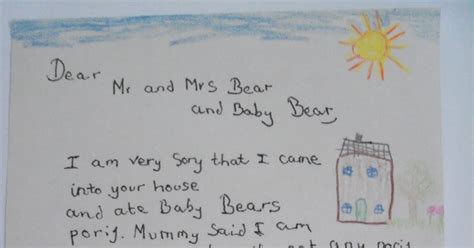 Dear
Mr and Mrs Bear
and Baby Bear,
I am very Sory that I came
into your house
and ate Baby Bears
porij. Mummy Said I am
not any poris